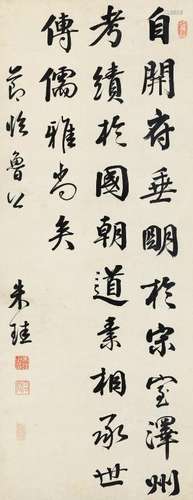 自開府垂明於宋室澤州
考績於國朝道素相承世
傳儒雅尚矣
節臨魯公
朱珪